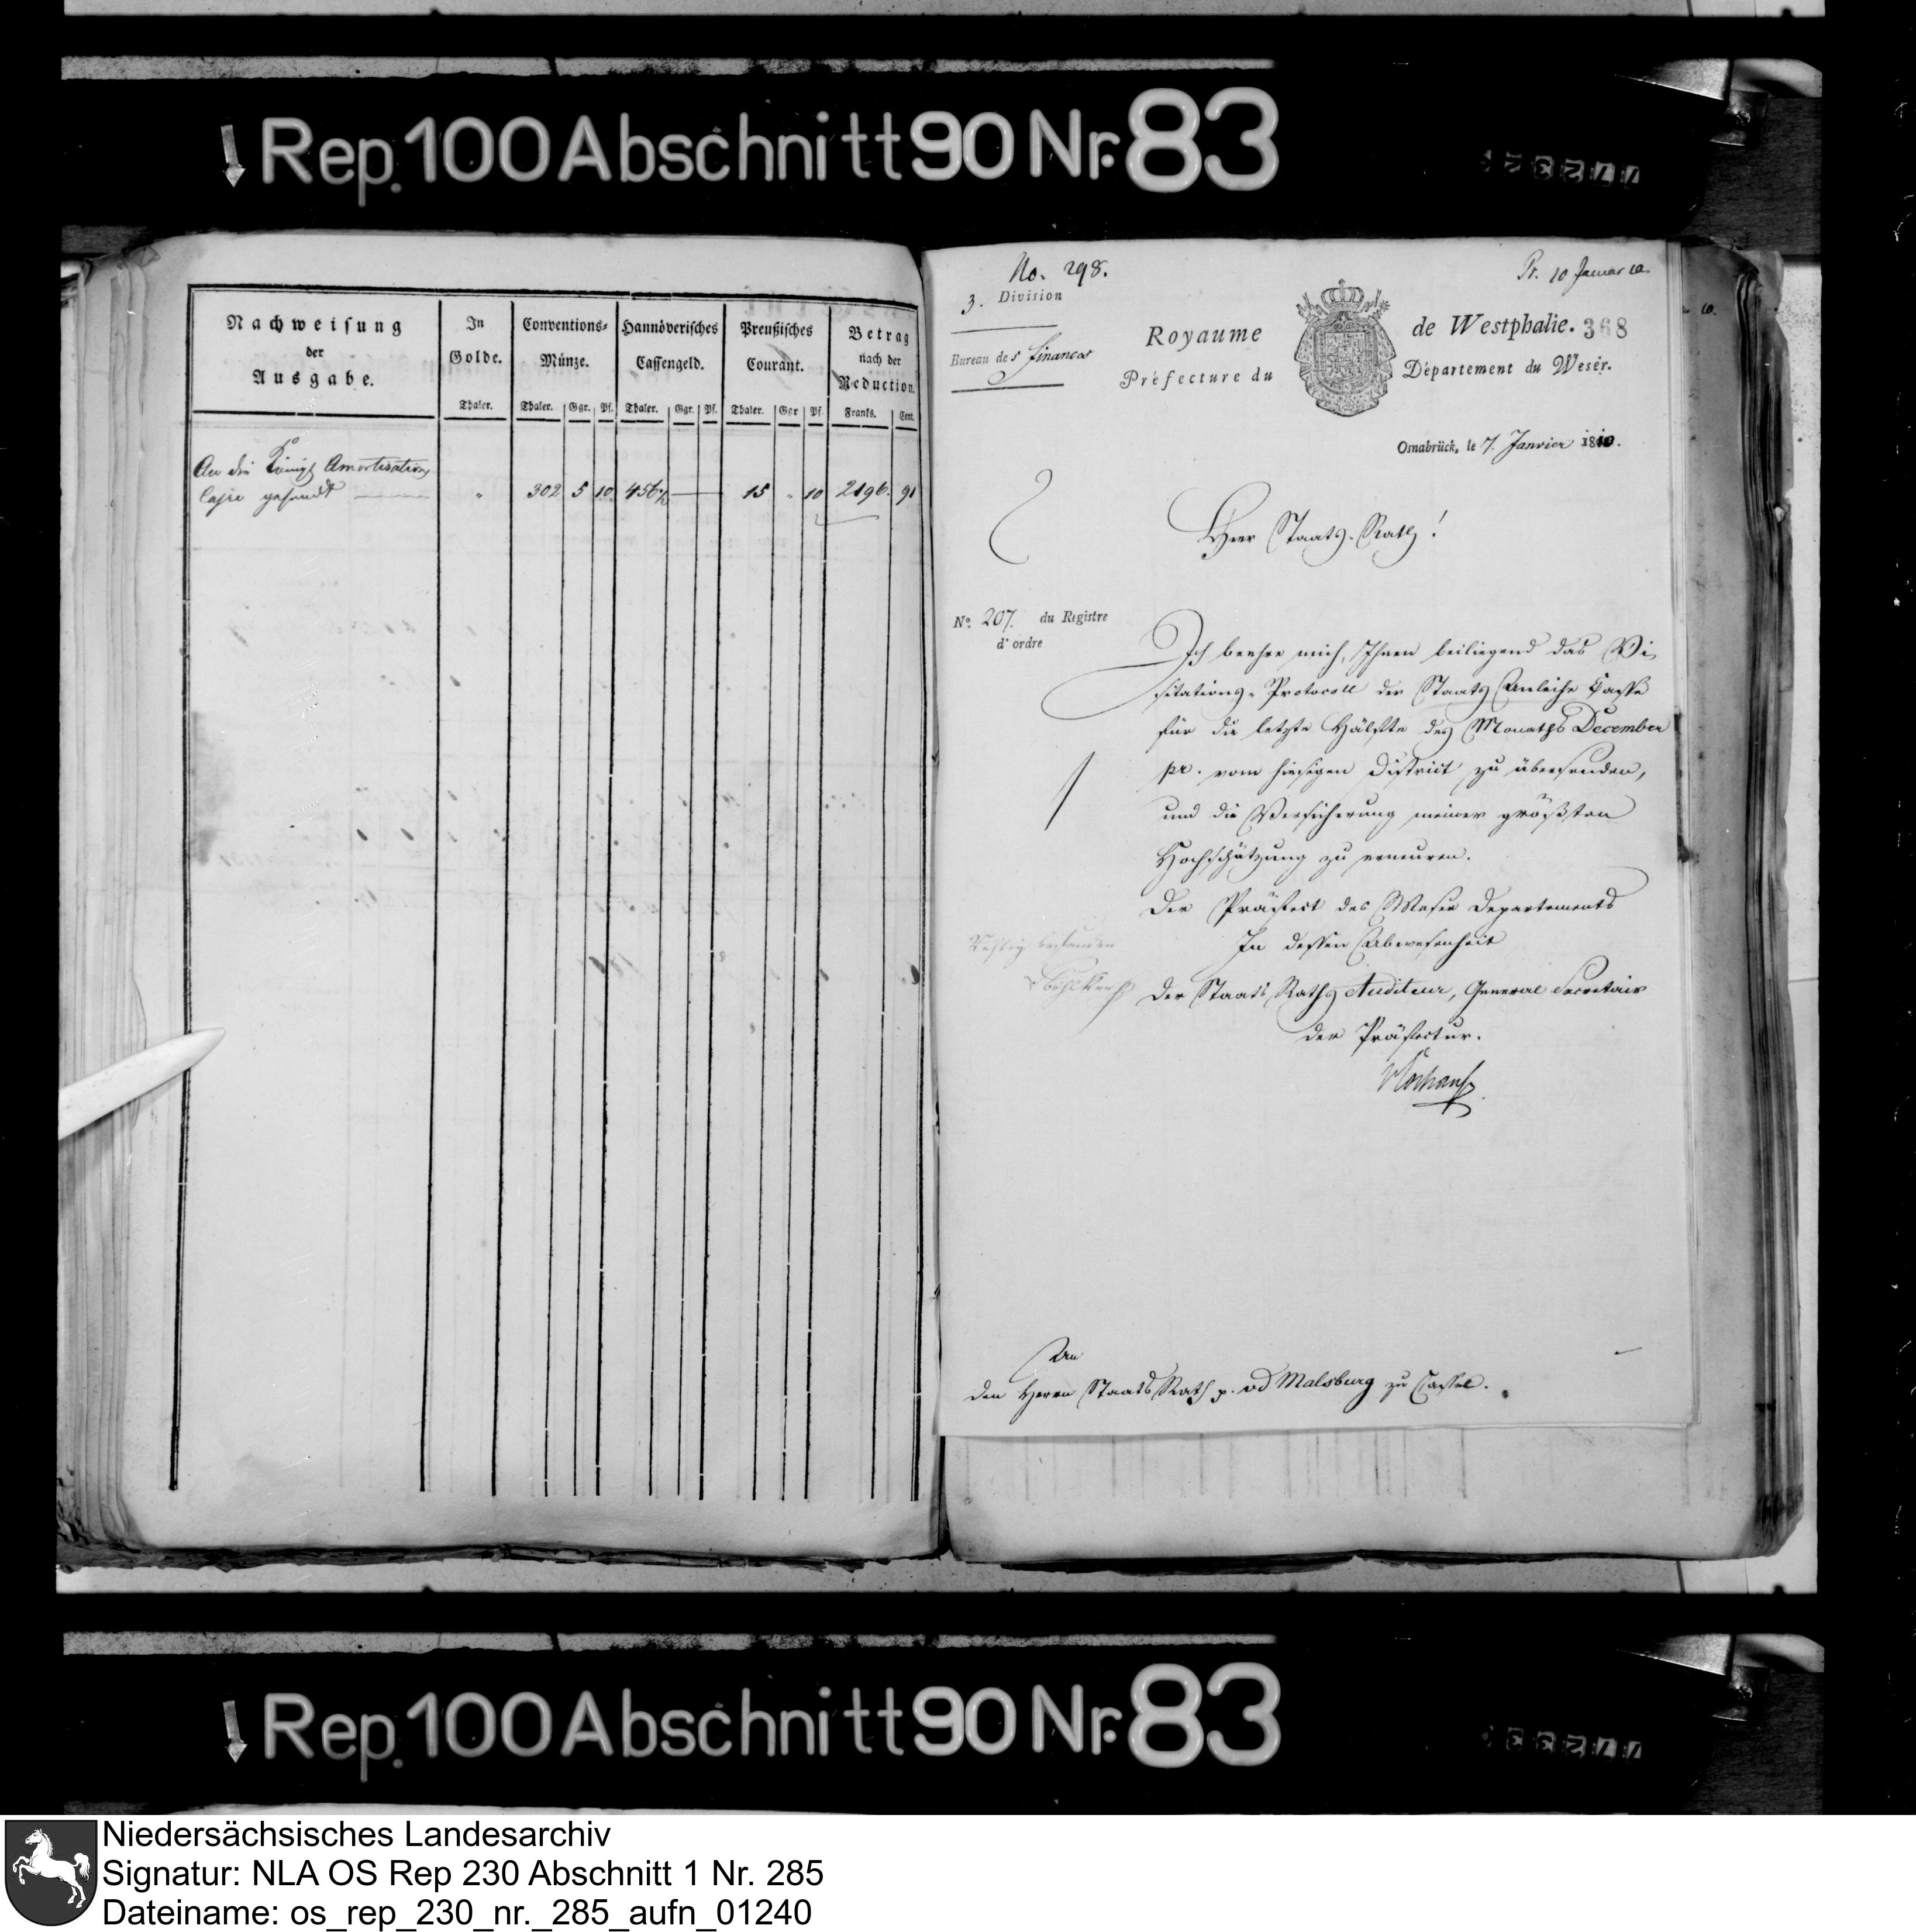 Rep. 100 Abschnitt 90 Nr. 83
Nachweisung
der
Ausgabe.
In
Golde.
Thaler.
Conventions-
Münze.
Thaler. Ggr. Pf.
Hannöverisches
Cassengeld.
Thaler. Ggr. Pf.
Preußisches
Courant.
Thaler. Ggr Pf.
Betrag
nach der
Reduction.
Franks. Cent.
An die Königl Amortisations
Casse gesandt — " 302 5 10 456½ — 15 " 10 2196. 91
No. 298.
Pr. 10 Januar 10.
3. Division
Bureau des finances
Royaume de Westphalie. 368
Préfecture du Département du Weser.
Osnabrück, le 7. Janvier 1810.
Herr Staats-Rath!
No. 207. du Registre
d'ordre
Ich beehre mich, Ihnen beiliegend das Vi-
sitations-Protocoll der Staats Anleihe Casse
für die letzte Hälfte des Monaths December
pr. vom hiesigen District zu übersenden,
und die Versicherung meiner größten
Hochschätzung zu erneuren.
Der Präfect des Weser Departements
In dessen Abwesenheit
Der Staats Raths Auditeur, General Secretair
der Präfectur.
An
den Herrn Staats Rath p. vd Malsburg zu Cassel.
Rep. 100 Abschnitt 90 Nr. 83
Niedersächsisches Landesarchiv
Signatur: NLA OS Rep 230 Abschnitt 1 Nr. 285
Dateiname: os_rep_230_nr._285_aufn_01240